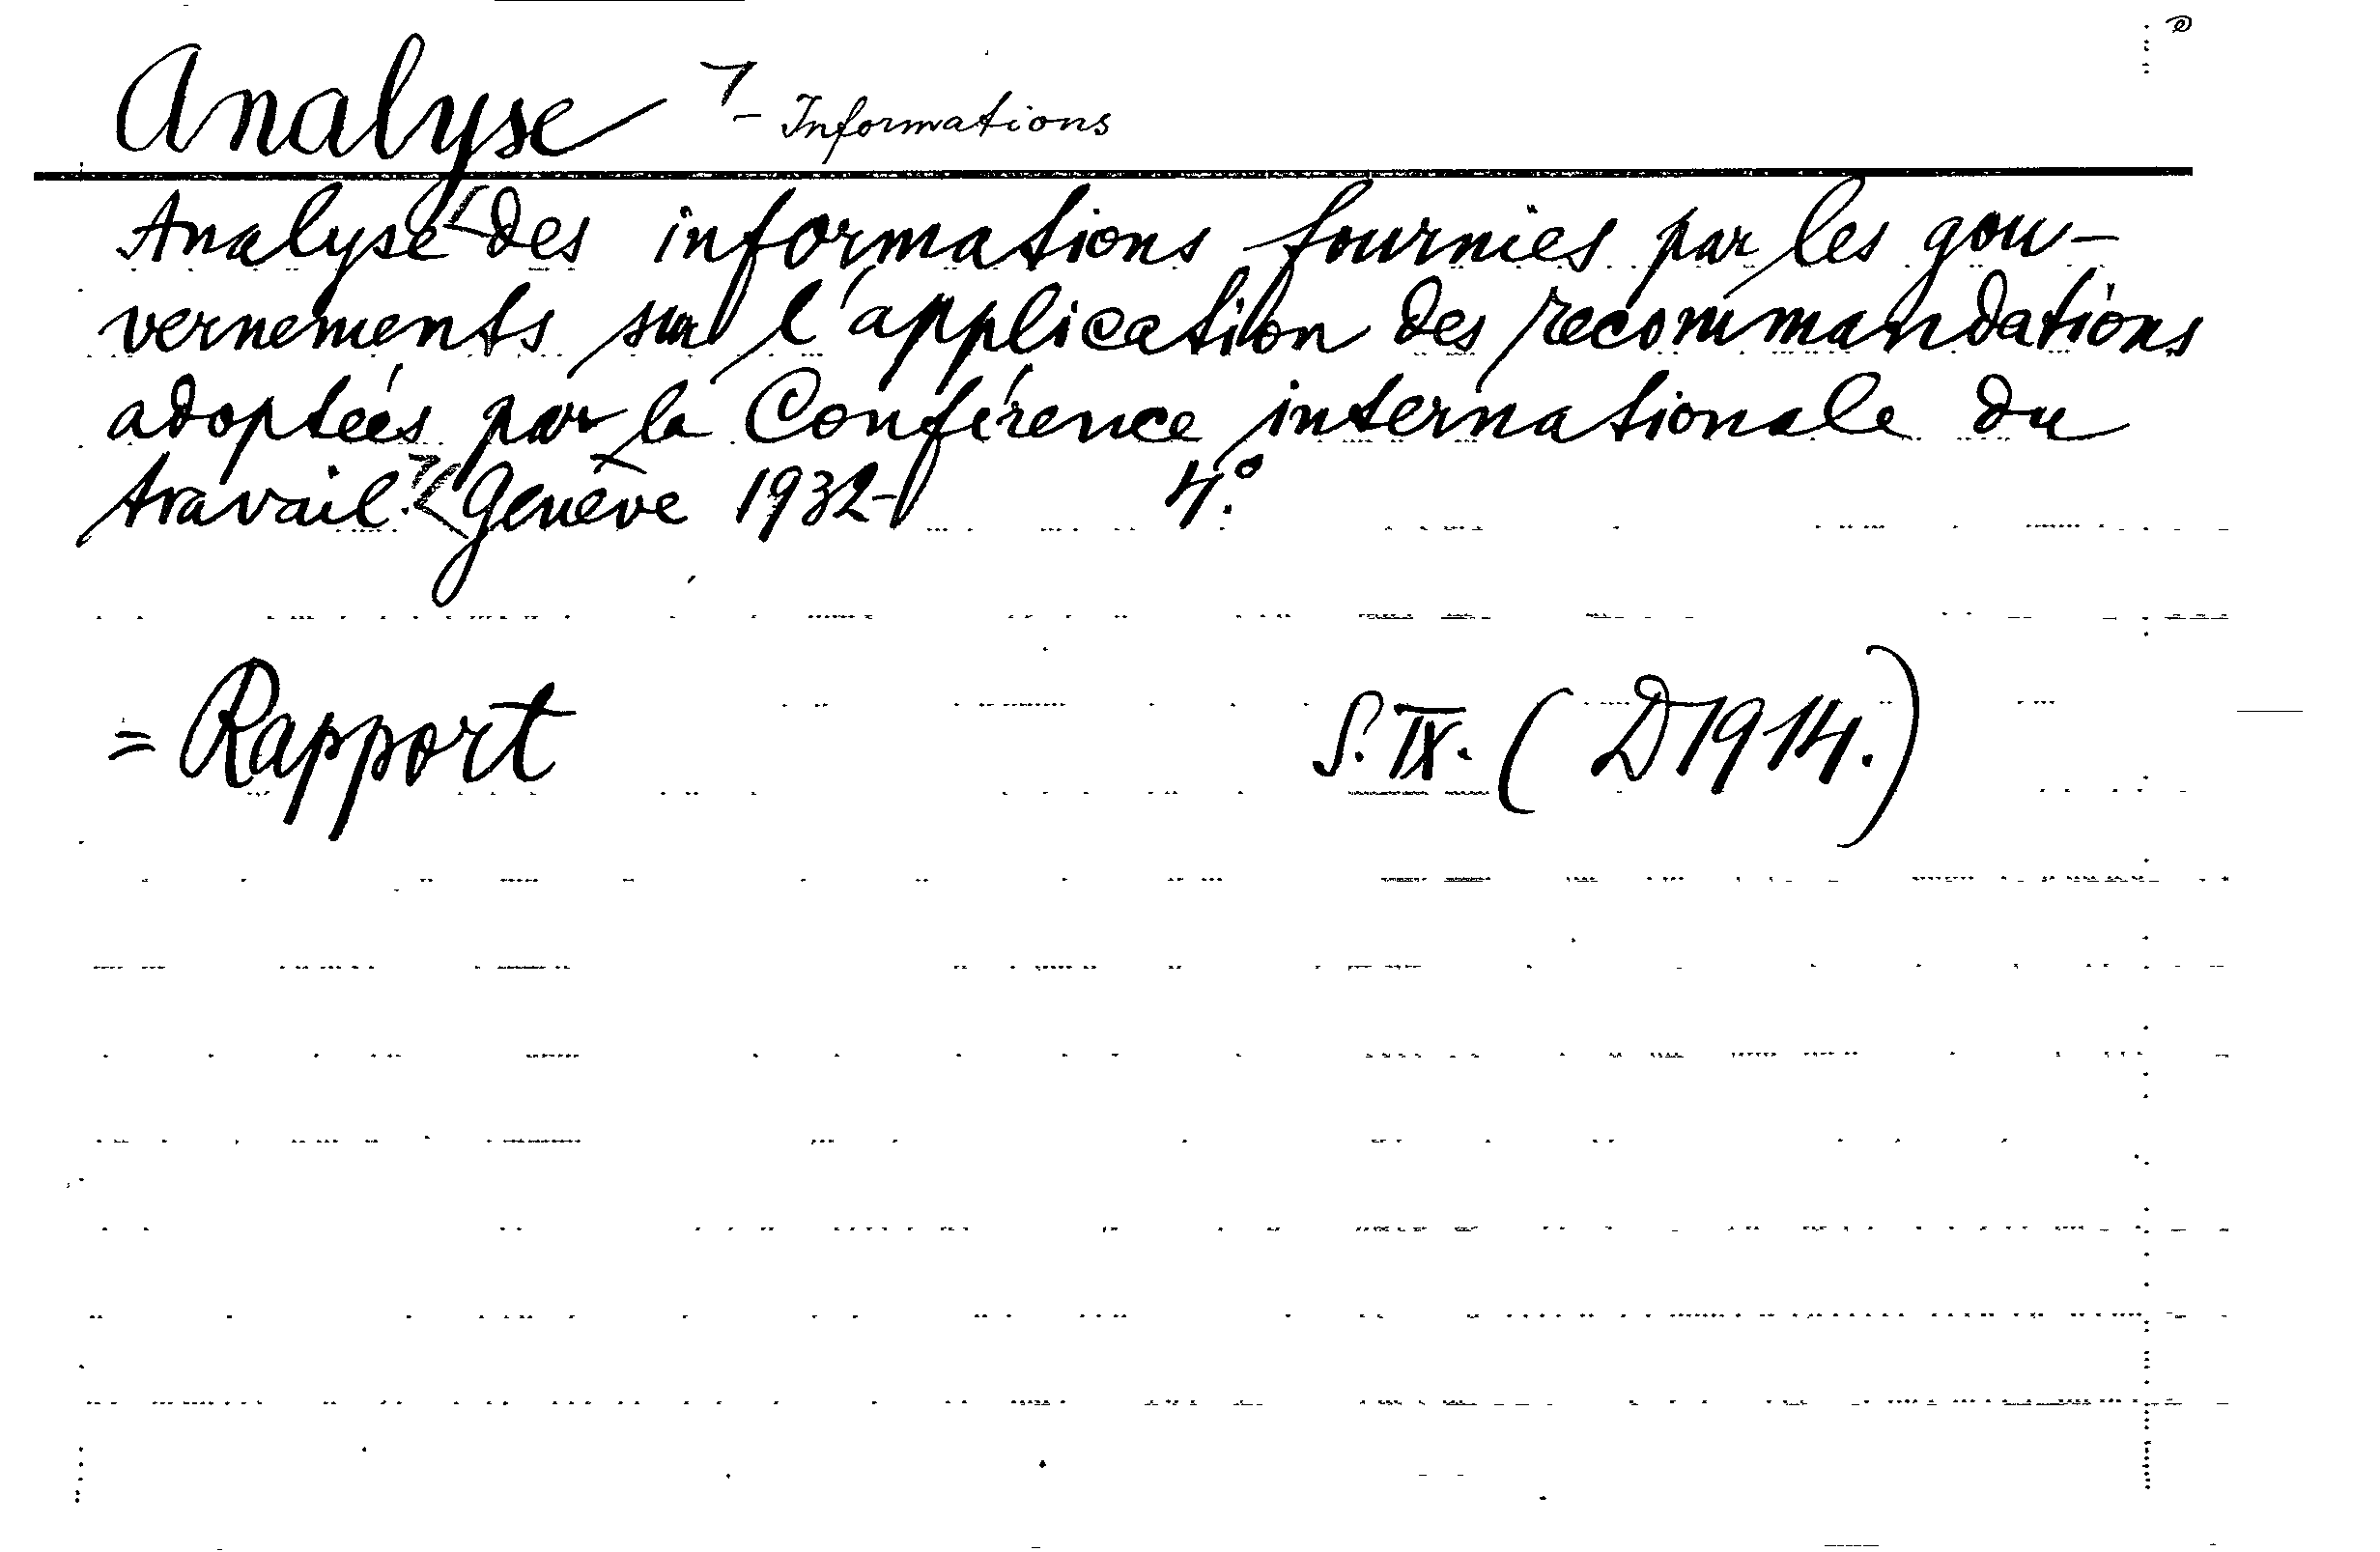 Analyse - Informations
Analyse des informations fournies par les gou-
vernements sur l'application des recommandations
adoptées par la Conférence internationale du
travail. Genève 1932- 4°.
= Rapport S. IX. (D1914.)